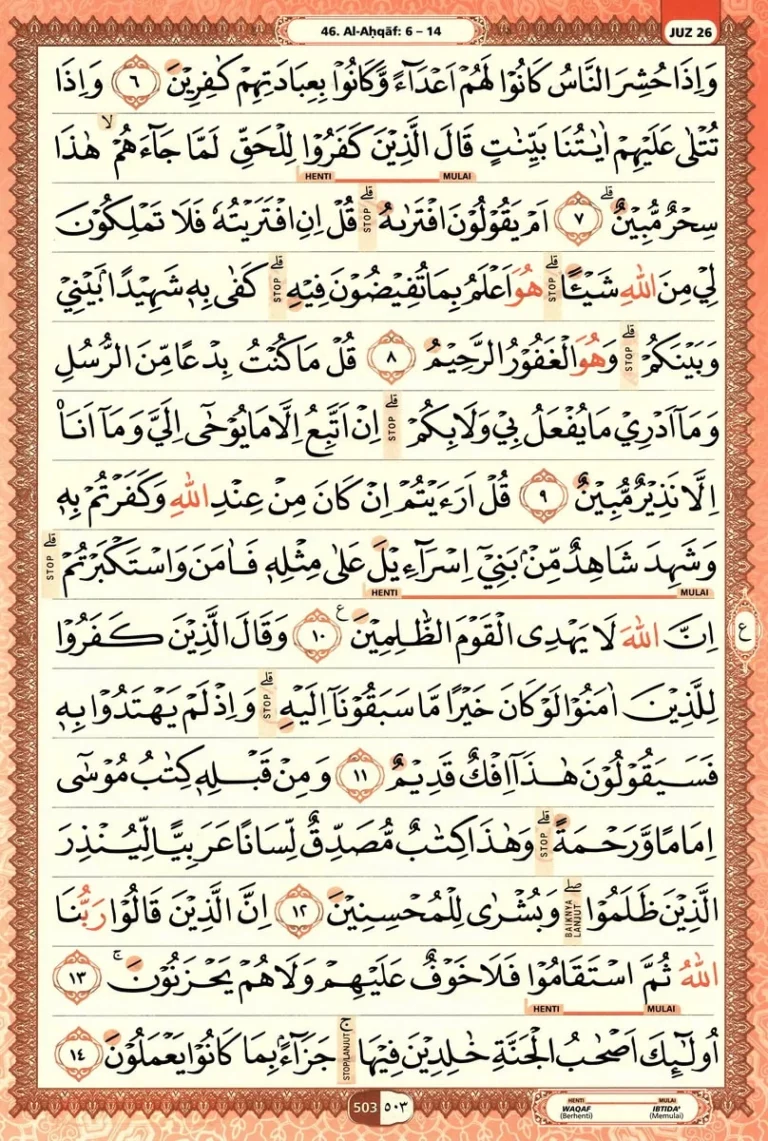 46. Al-Aḥqāf: 6 – 14
JUZ 26
وَاِذَا حُشِرَ النَّاسُ كَانُوْا لَهُمْ اَعْدَاۤءً وَّكَانُوْا بِعِبَادَتِهِمْ كٰفِرِيْنَ ٦ وَاِذَا
تُتْلٰى عَلَيْهِمْ اٰيٰتُنَا بَيِّنٰتٍ قَالَ الَّذِيْنَ كَفَرُوْا لِلْحَقِّ لَمَّا جَاۤءَهُمْۙ هٰذَا
HENTI MULAI
سِحْرٌ مُّبِيْنٌۗ ٧ اَمْ يَقُوْلُوْنَ افْتَرٰىهُ ۗ STOP قُلْ اِنِ افْتَرَيْتُهٗ فَلَا تَمْلِكُوْنَ
لِيْ مِنَ اللّٰهِ شَيْـًٔا ۗ STOP هُوَ اَعْلَمُ بِمَا تُفِيْضُوْنَ فِيْهِ ۗ STOP كَفٰى بِهٖ شَهِيْدًاۢ بَيْنِيْ
وَبَيْنَكُمْ ۗ STOP وَهُوَ الْغَفُوْرُ الرَّحِيْمُ ٨ قُلْ مَا كُنْتُ بِدْعًا مِّنَ الرُّسُلِ
وَمَآ اَدْرِيْ مَا يُفْعَلُ بِيْ وَلَا بِكُمْ ۗ STOP اِنْ اَتَّبِعُ اِلَّا مَا يُوْحٰٓى اِلَيَّ وَمَآ اَنَا۠
اِلَّا نَذِيْرٌ مُّبِيْنٌ ٩ قُلْ اَرَءَيْتُمْ اِنْ كَانَ مِنْ عِنْدِ اللّٰهِ وَكَفَرْتُمْ بِهٖ
وَشَهِدَ شَاهِدٌ مِّنْۢ بَنِيْٓ اِسْرَاۤءِيْلَ عَلٰى مِثْلِهٖ فَاٰمَنَ وَاسْتَكْبَرْتُمْ ۗ STOP
HENTI MULAI
اِنَّ اللّٰهَ لَا يَهْدِى الْقَوْمَ الظّٰلِمِيْنَ ࣖ ١٠ وَقَالَ الَّذِيْنَ كَفَرُوْا
ع
لِلَّذِيْنَ اٰمَنُوْا لَوْ كَانَ خَيْرًا مَّا سَبَقُوْنَآ اِلَيْهِ ۗ STOP وَاِذْ لَمْ يَهْتَدُوْا بِهٖ
فَسَيَقُوْلُوْنَ هٰذَآ اِفْكٌ قَدِيْمٌ ١١ وَمِنْ قَبْلِهٖ كِتٰبُ مُوْسٰٓى
اِمَامًا وَّرَحْمَةً ۗ STOP وَهٰذَا كِتٰبٌ مُّصَدِّقٌ لِّسَانًا عَرَبِيًّا لِّيُنْذِرَ
الَّذِيْنَ ظَلَمُوْا ۖ BAIKNYA LANJUT وَبُشْرٰى لِلْمُحْسِنِيْنَ ١٢ اِنَّ الَّذِيْنَ قَالُوْا رَبُّنَا
اللّٰهُ ثُمَّ اسْتَقَامُوْا فَلَا خَوْفٌ عَلَيْهِمْ وَلَا هُمْ يَحْزَنُوْنَۚ ١٣
HENTI MULAI
اُولٰۤىِٕكَ اَصْحٰبُ الْجَنَّةِ خٰلِدِيْنَ فِيْهَا ۚ STOP/LANJUT جَزَاۤءًۢ بِمَا كَانُوْا يَعْمَلُوْنَ ١٤
503 ٥٠٣
HENTI MULAI
WAQAF IBTIDA'
(Berhenti) (Memulai)